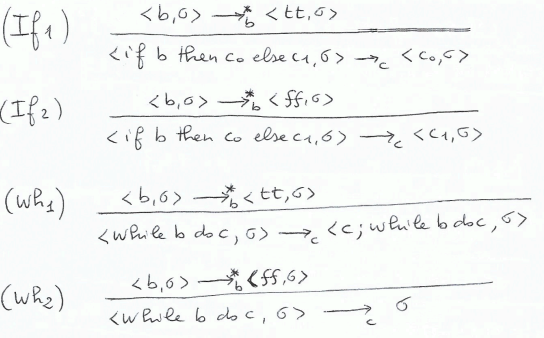 (If₁) <b,σ> →*b <tt,σ>
<if b then c₀ else c₁,σ> →c <c₀,σ>
(If₂) <b,σ> →*b <ff,σ>
<if b then c₀ else c₁,σ> →c <c₁,σ>
(wh₁) <b,σ> →*b <tt,σ>
<while b do c, σ> →c <c; while b do c, σ>
(wh₂) <b,σ> →*b <ff,σ>
<while b do c, σ> →c σ